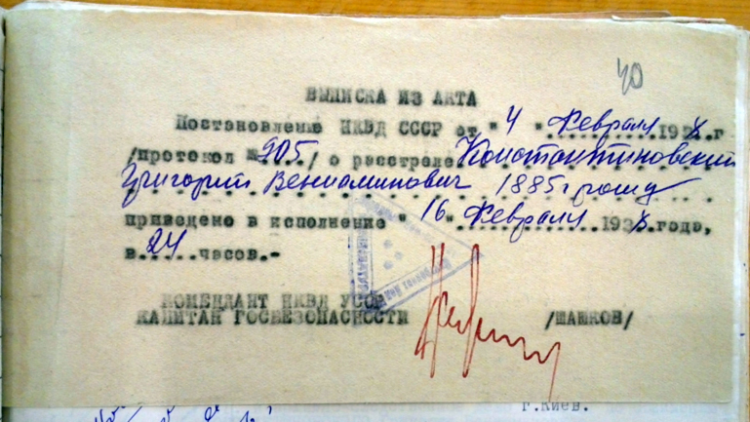 40
ВЫПИСКА ИЗ АКТА
Постановление НКВД СССР от "4" февраля 1938.г
/протокол № 905/ о расстреле Константиновский
Григорий Вениаминович 1885 г рожд
приведено в исполнение "16" февраля 1938.года,
в 24 часов.-
КОМЕНДАНТ НКВД УССР
КАПИТАН ГОСБЕЗОПАСНОСТИ /ШАШКОВ/
г.Киев.